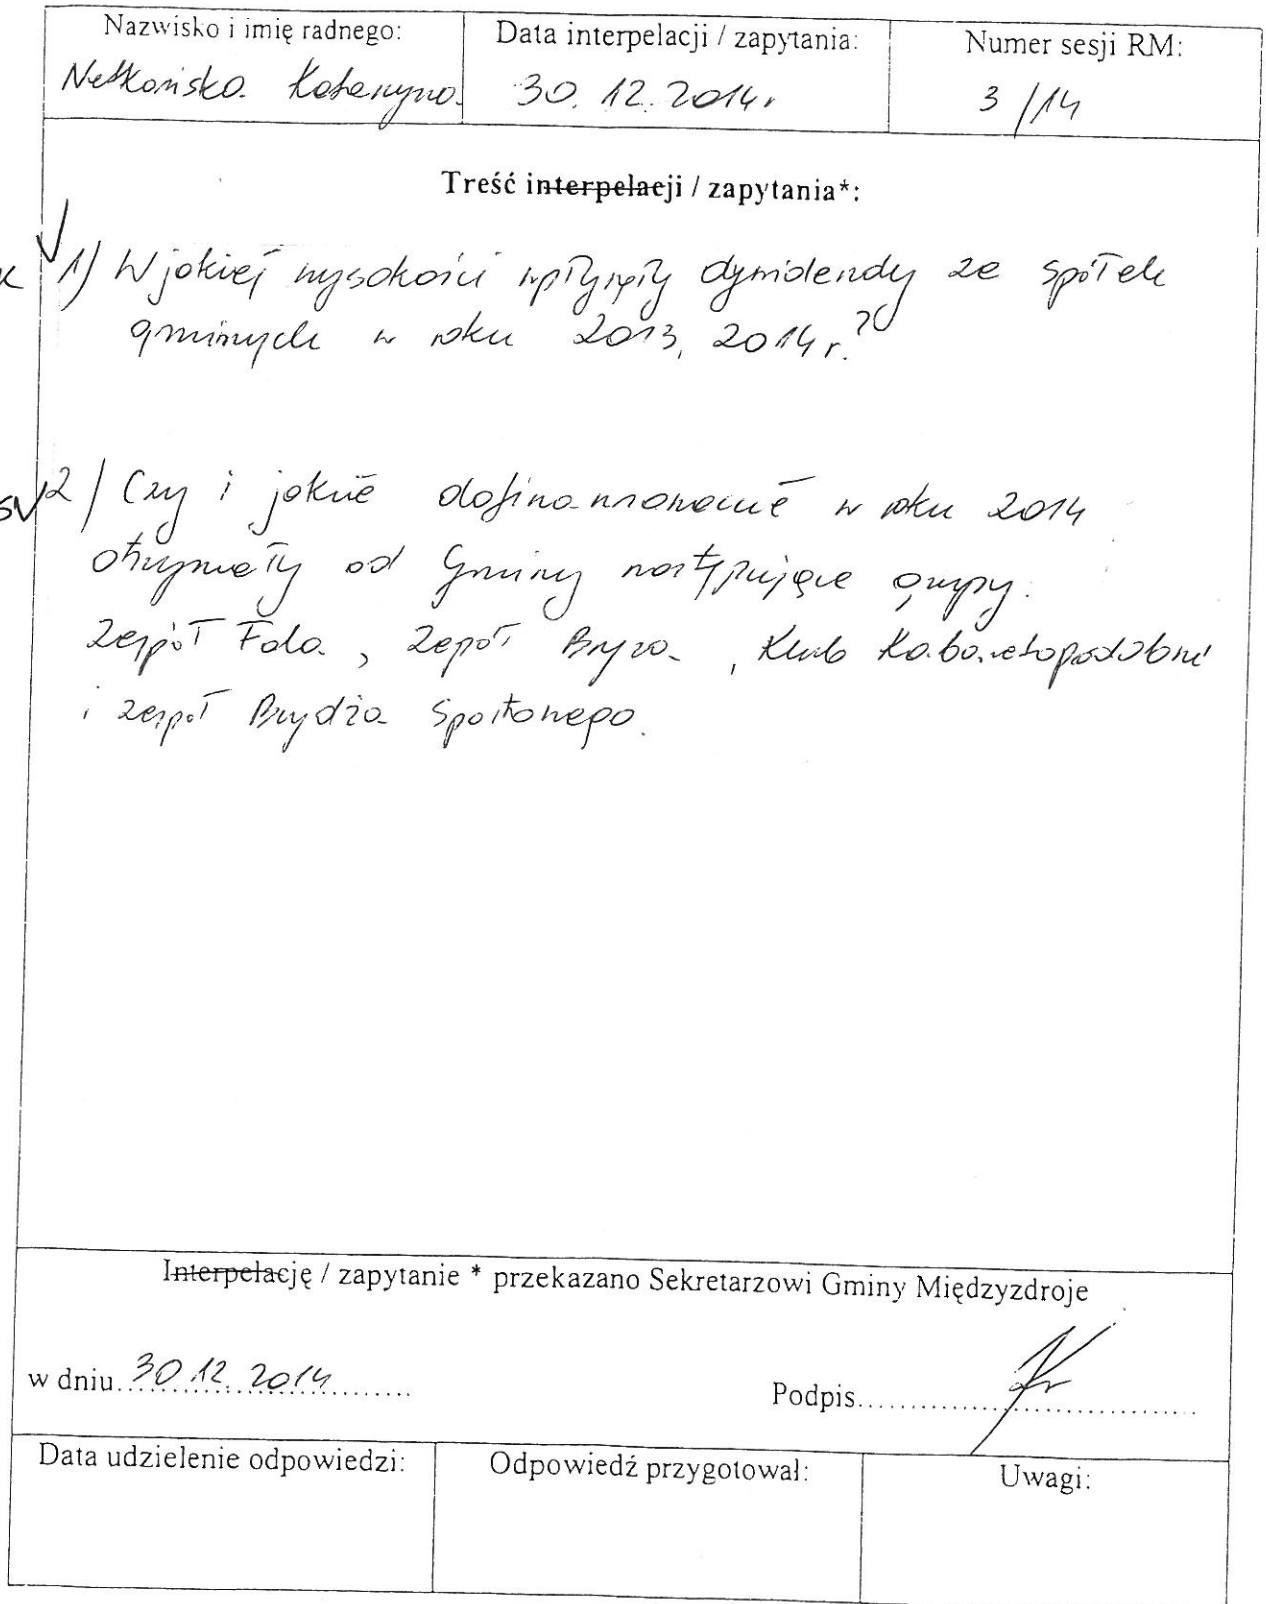 Nazwisko i imię radnego:
Netkańska Katarzyna
Data interpelacji / zapytania:
30. 12. 2014r
Numer sesji RM:
3 /14
Treść interpelacji / zapytania*:
1) W jakiej wysokości wpłynęły dywidendy ze spółek
gminnych w roku 2013, 2014 r.?
2/ Czy i jakie dofinansowanie w roku 2014
otrzymały od Gminy następujące grupy:
Zespół Fala, Zespół Bryza, Klub Kabaretopodobni
i zespół Brydża Sportowego.
Interpelację / zapytanie * przekazano Sekretarzowi Gminy Międzyzdroje
w dniu 30 12. 2014
Podpis
Data udzielenie odpowiedzi:
Odpowiedź przygotował:
Uwagi: